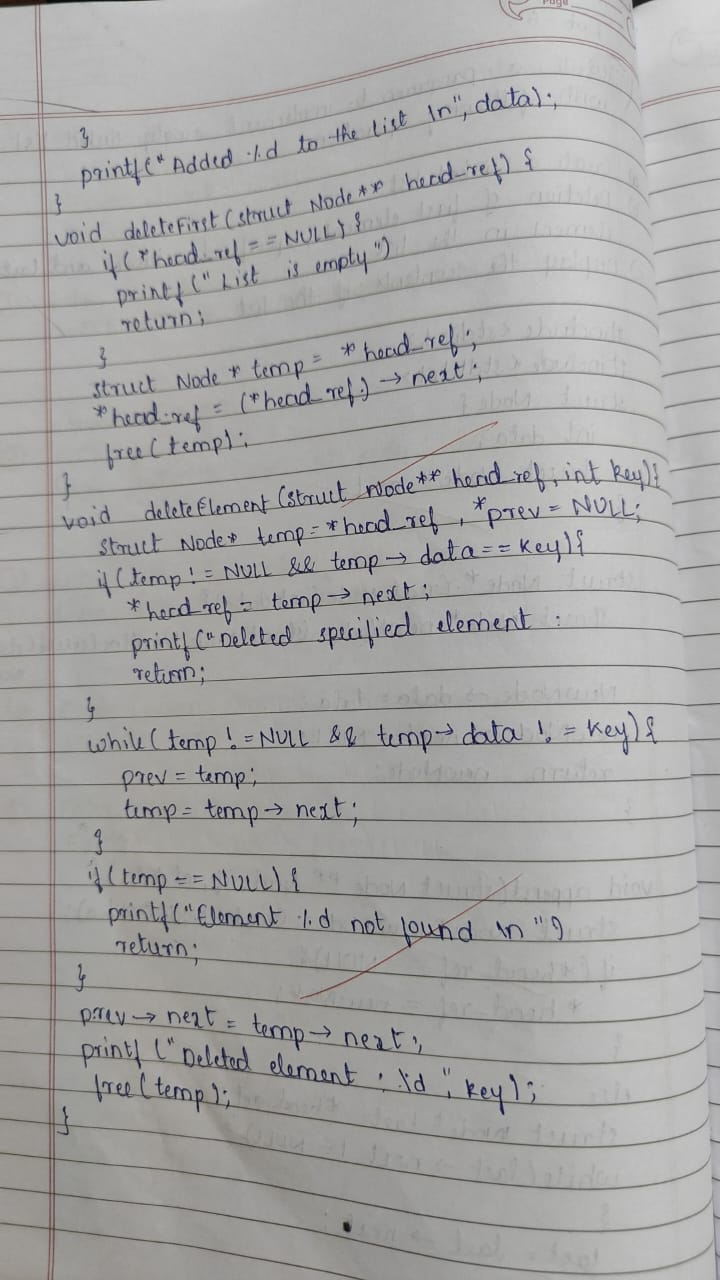 Page
}
printf(" Added %d to the list \n", data);
}
void deleteFirst (struct Node** head_ref) {
if (*head_ref == NULL) {
printf(" List is empty")
return;
}
struct Node * temp = *head_ref;
*head_ref = (*head_ref) → next;
free(temp);
}
void deleteElement (struct Node** head_ref, int key){
struct Node* temp = *head_ref, *prev = NULL;
if (temp != NULL && temp → data == key){
*head_ref = temp → next;
printf("Deleted specified element :
return;
}
while (temp != NULL && temp → data != key) {
prev = temp;
temp = temp → next;
}
if (temp == NULL) {
printf("Element %d not found \n")
return;
}
prev → next = temp → next;
printf ("Deleted element : %d", key);
free(temp);
}